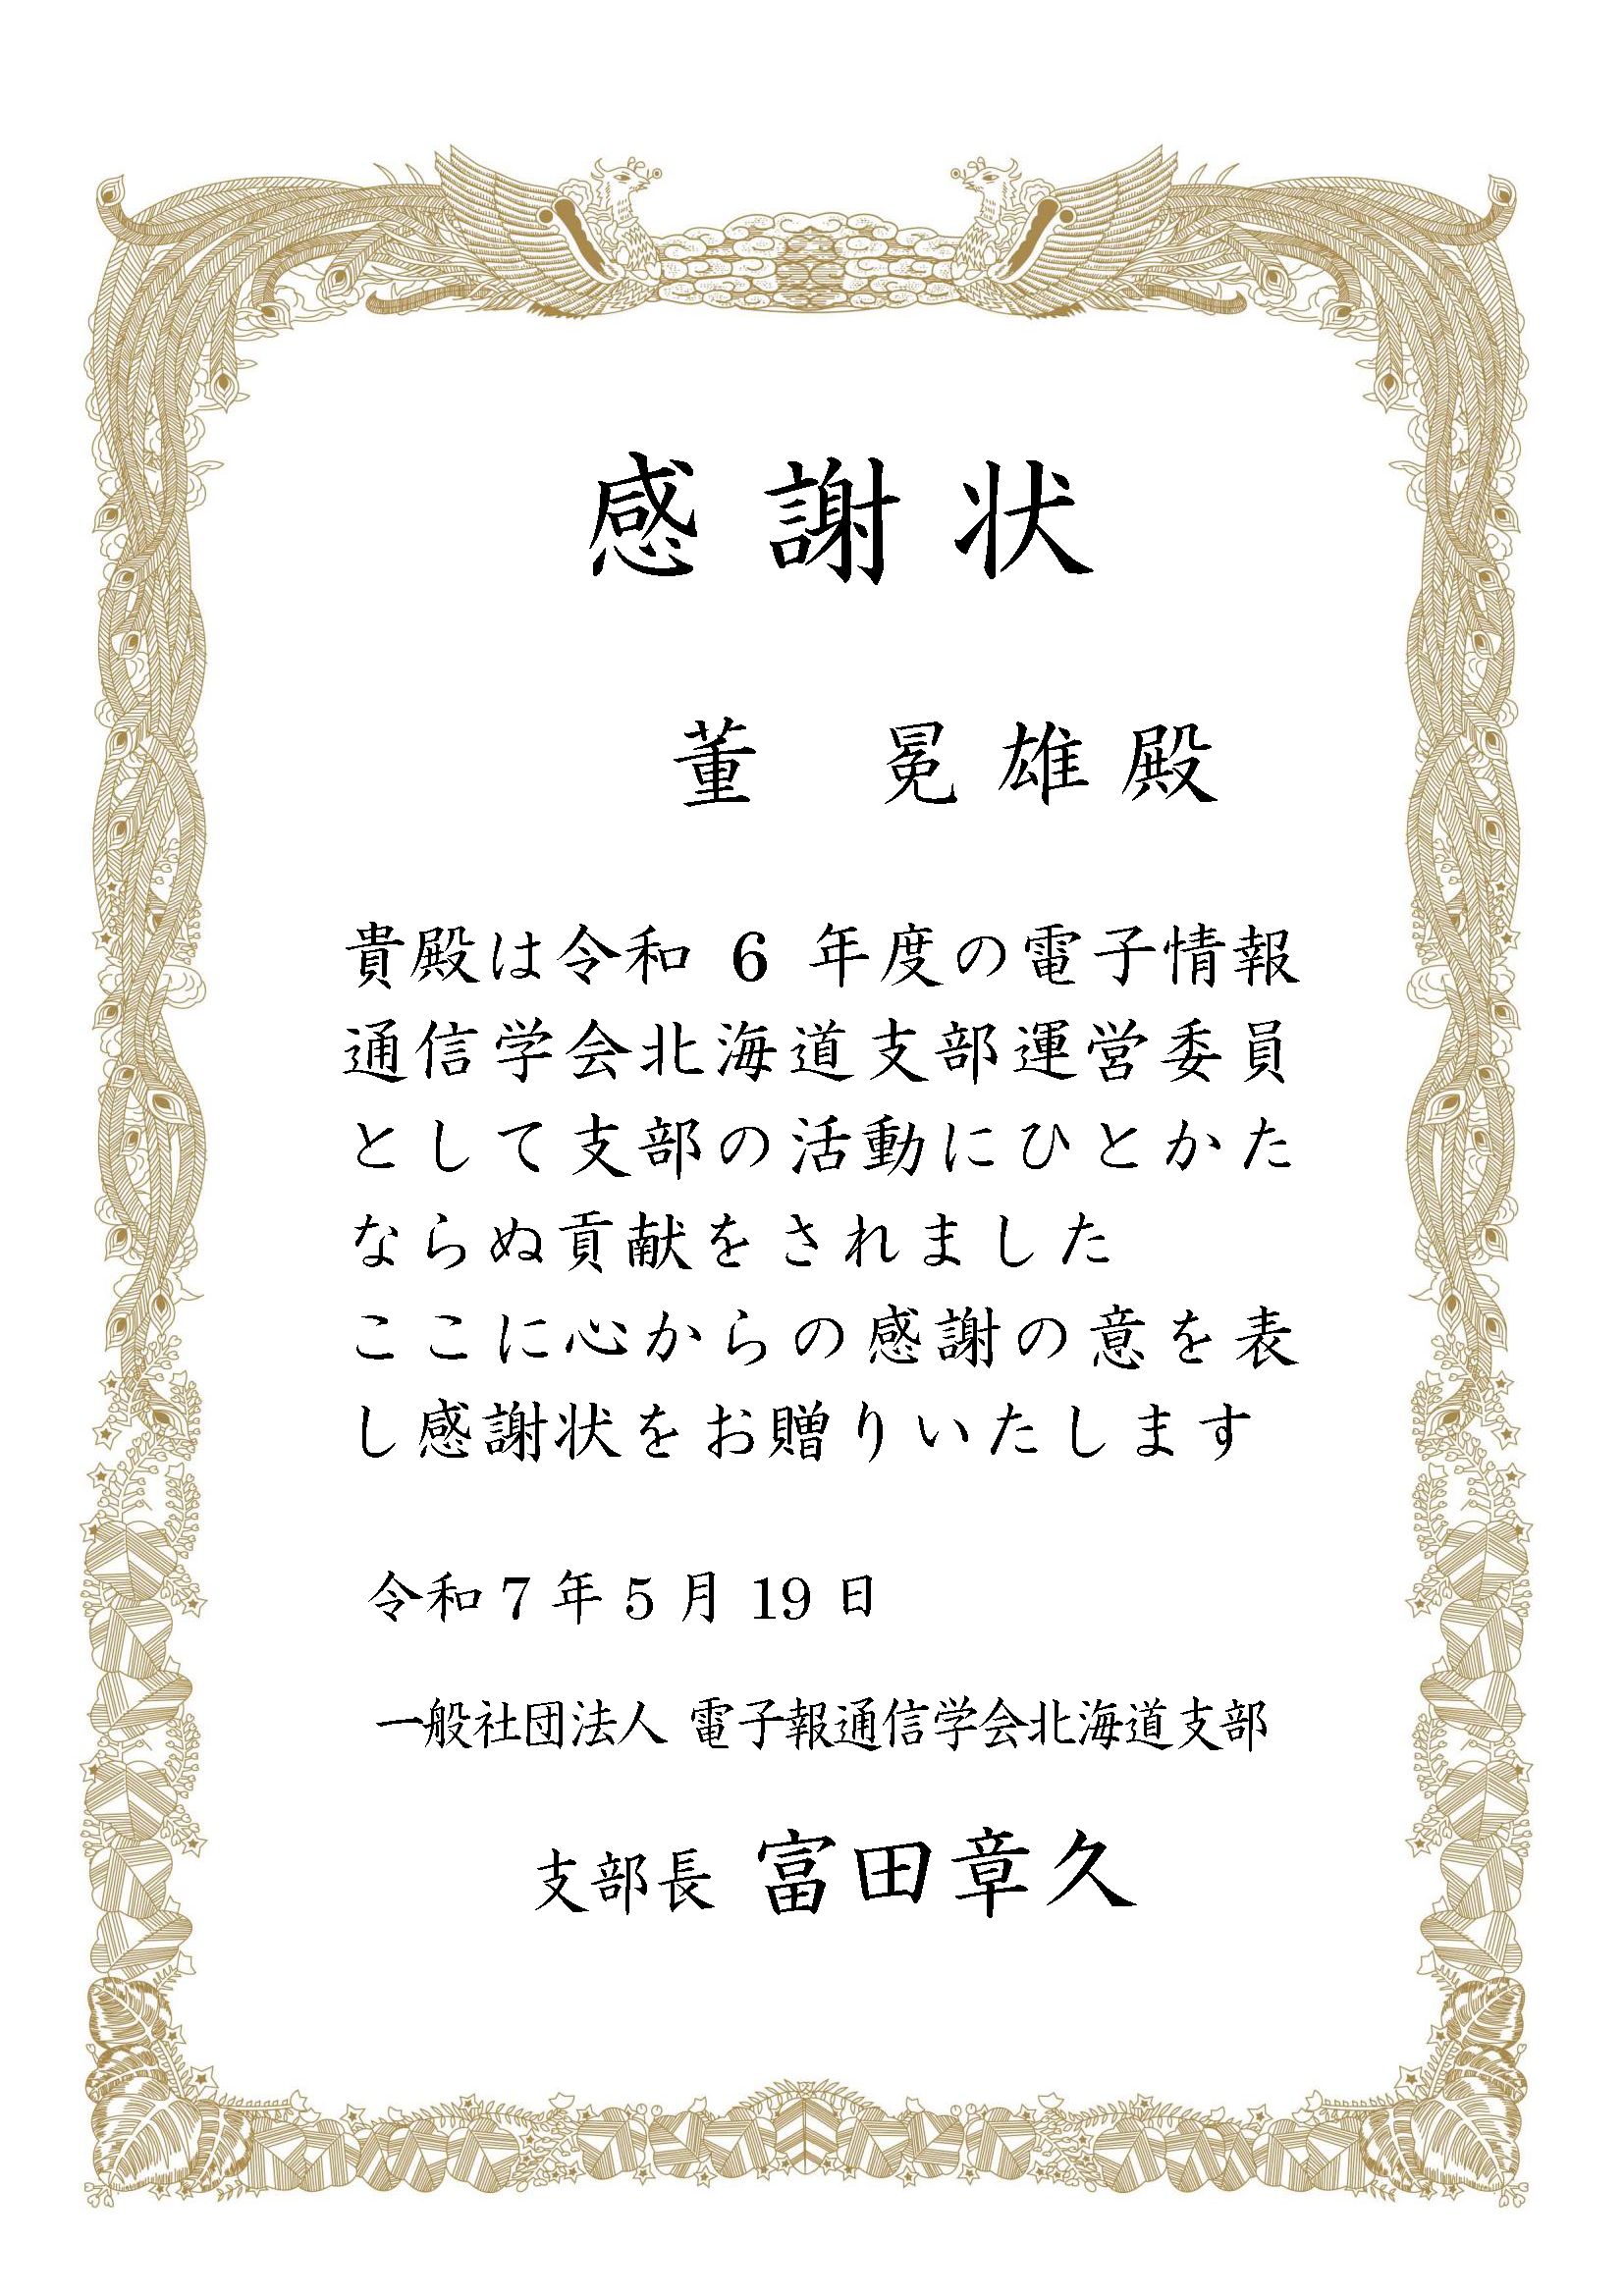 感謝状
董　冕雄殿
貴殿は令和 6 年度の電子情報
通信学会北海道支部運営委員
として支部の活動にひとかた
ならぬ貢献をされました
ここに心からの感謝の意を表
し感謝状をお贈りいたします
令和 7 年 5 月 19 日
一般社団法人 電子報通信学会北海道支部
支部長 富田章久